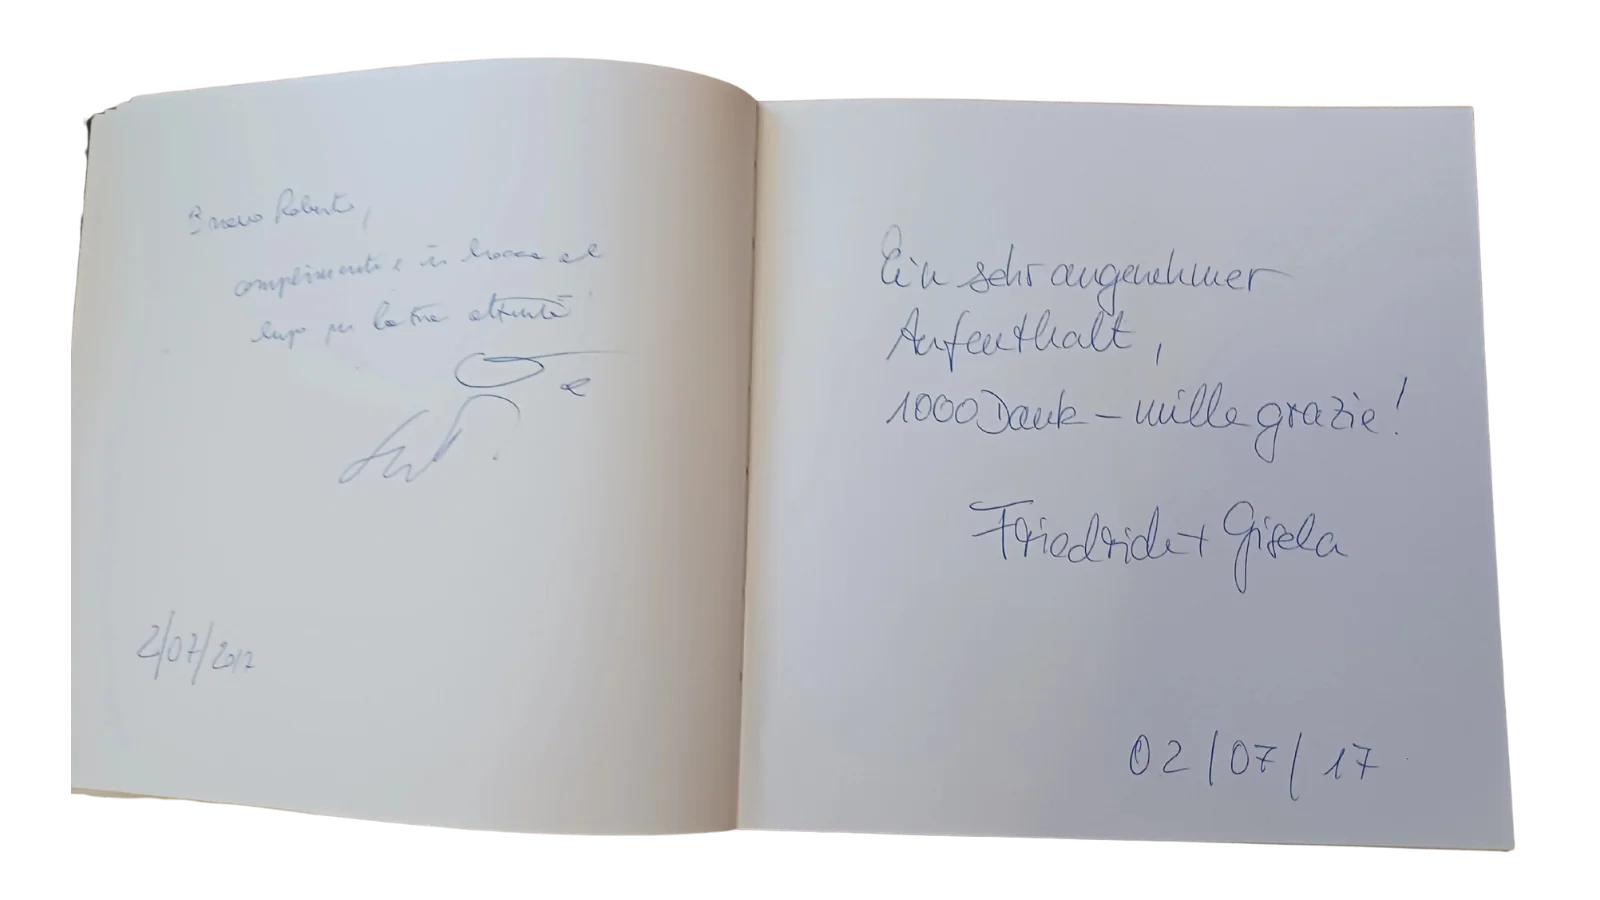 Bravo Roberto,
complimenti e in bocca al
lupo per la tua attività!
2/07/2017
Ein sehr angenehmer
Aufenthalt,
1000 Dank – mille grazie!
Friedrich + Gisela
02/07/17